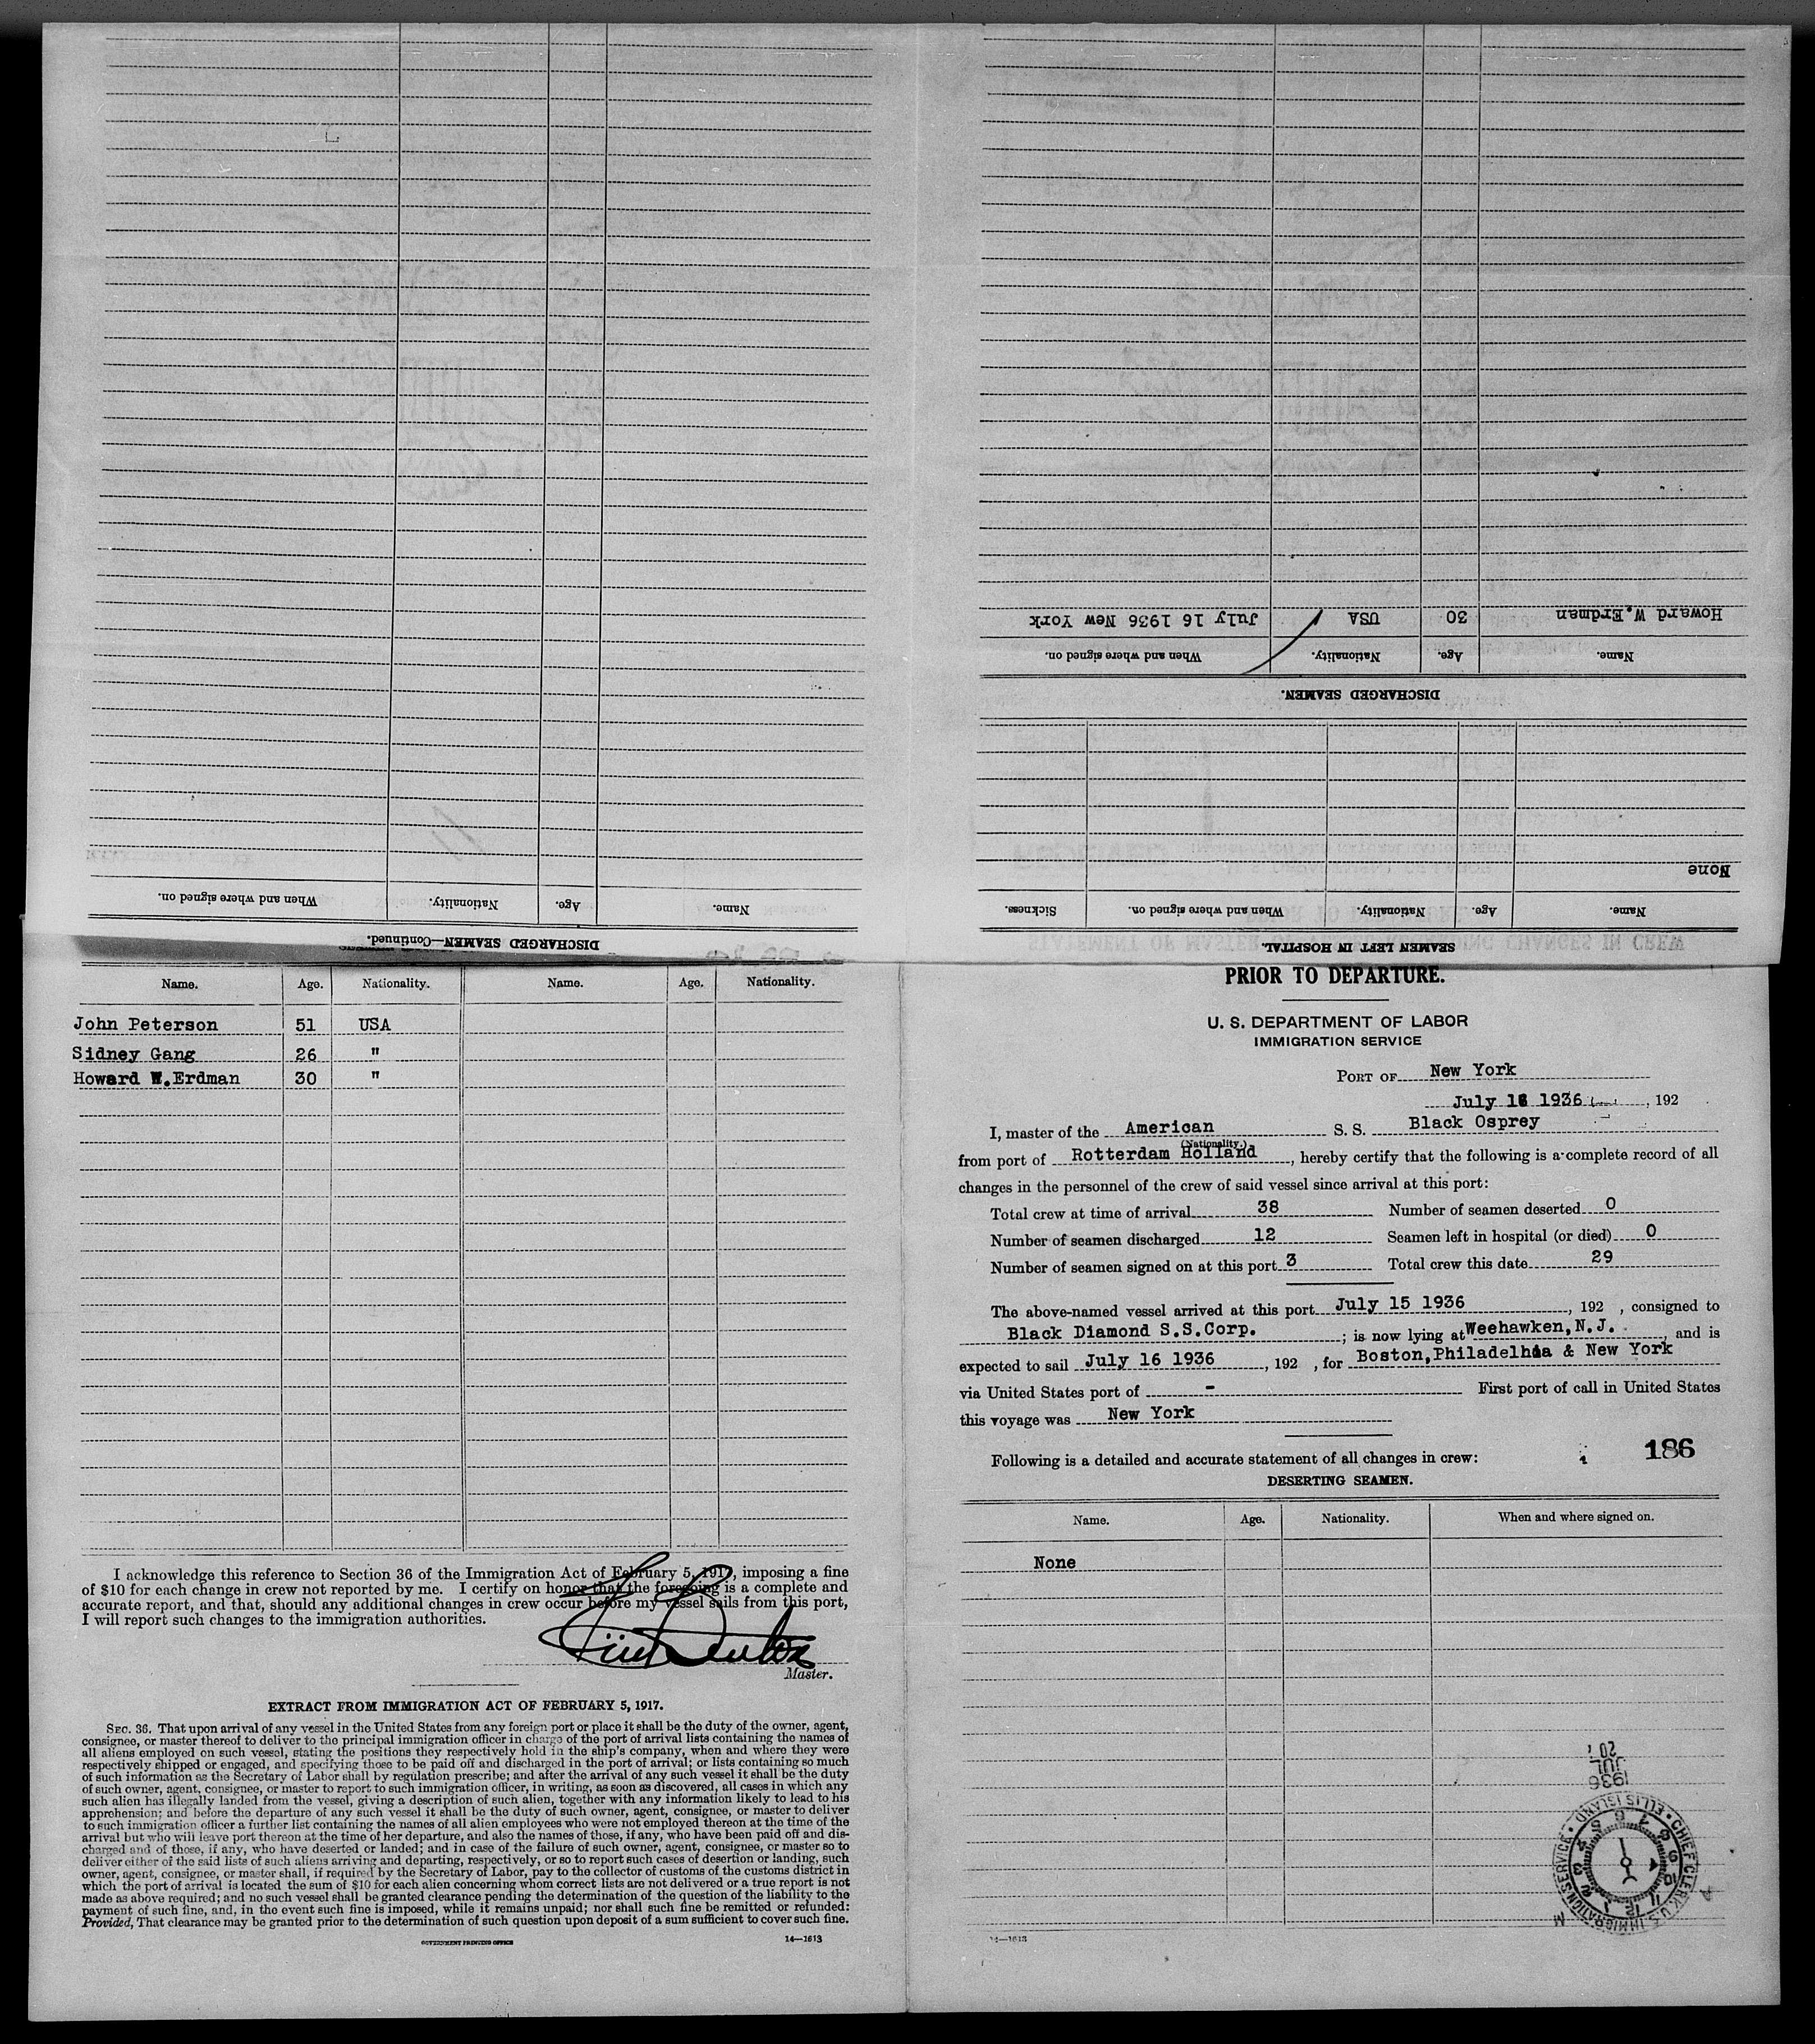 DISCHARGED SEAMEN—Continued.
Name. Age. Nationality. When and where signed on.
SEAMEN LEFT IN HOSPITAL.
Name. Age. Nationality. When and where signed on. Sickness.
None
DISCHARGED SEAMEN.
Name. Age. Nationality. When and where signed on.
Howard W.Erdman 30 USA July 16 1936 New York
Name. Age. Nationality. Name. Age. Nationality.
John Peterson 51 USA
Sidney Gang 26 "
Howard W.Erdman 30 "
I acknowledge this reference to Section 36 of the Immigration Act of February 5, 1917, imposing a fine
of $10 for each change in crew not reported by me. I certify on honor that the foregoing is a complete and
accurate report, and that, should any additional changes in crew occur before my vessel sails from this port,
I will report such changes to the immigration authorities.
Master.
EXTRACT FROM IMMIGRATION ACT OF FEBRUARY 5, 1917.
SEC. 36. That upon arrival of any vessel in the United States from any foreign port or place it shall be the duty of the owner, agent,
consignee, or master thereof to deliver to the principal immigration officer in charge of the port of arrival lists containing the names of
all aliens employed on such vessel, stating the positions they respectively hold in the ship's company, when and where they were
respectively shipped or engaged, and specifying those to be paid off and discharged in the port of arrival; or lists containing so much
of such information as the Secretary of Labor shall by regulation prescribe; and after the arrival of any such vessel it shall be the duty
of such owner, agent, consignee, or master to report to such immigration officer, in writing, as soon as discovered, all cases in which any
such alien has illegally landed from the vessel, giving a description of such alien, together with any information likely to lead to his
apprehension; and before the departure of any such vessel it shall be the duty of such owner, agent, consignee, or master to deliver
to such immigration officer a further list containing the names of all alien employees who were not employed thereon at the time of the
arrival but who will leave port thereon at the time of her departure, and also the names of those, if any, who have been paid off and dis-
charged and of those, if any, who have deserted or landed; and in case of the failure of such owner, agent, consignee, or master so to
deliver either of the said lists of such aliens arriving and departing, respectively, or so to report such cases of desertion or landing, such
owner, agent, consignee, or master shall, if required by the Secretary of Labor, pay to the collector of customs of the customs district in
which the port of arrival is located the sum of $10 for each alien concerning whom correct lists are not delivered or a true report is not
made as above required; and no such vessel shall be granted clearance pending the determination of the question of the liability to the
payment of such fine, and, in the event such fine is imposed, while it remains unpaid; nor shall such fine be remitted or refunded:
Provided, That clearance may be granted prior to the determination of such question upon deposit of a sum sufficient to cover such fine.
GOVERNMENT PRINTING OFFICE 14—1613
PRIOR TO DEPARTURE.
U. S. DEPARTMENT OF LABOR
IMMIGRATION SERVICE
PORT OF New York
July 16 1936, 192
I, master of the American S. S. Black Osprey
(Nationality.)
from port of Rotterdam Holland, hereby certify that the following is a complete record of all
changes in the personnel of the crew of said vessel since arrival at this port:
Total crew at time of arrival 38 Number of seamen deserted 0
Number of seamen discharged 12 Seamen left in hospital (or died) 0
Number of seamen signed on at this port 3 Total crew this date 29
The above-named vessel arrived at this port July 15 1936, 192 , consigned to
Black Diamond S.S.Corp. ; is now lying at Weehawken,N.J. , and is
expected to sail July 16 1936, 192 , for Boston,Philadelhia & New York
via United States port of - First port of call in United States
this voyage was New York
186
Following is a detailed and accurate statement of all changes in crew:
DESERTING SEAMEN.
Name. Age. Nationality. When and where signed on.
None
1936
JUL
20
CHIEF CLERK U.S. IMMIGRATION SERVICE • ELLIS ISLAND •
1 2 3 4 5 6 7 8 9 10 11 12
M
14—1613